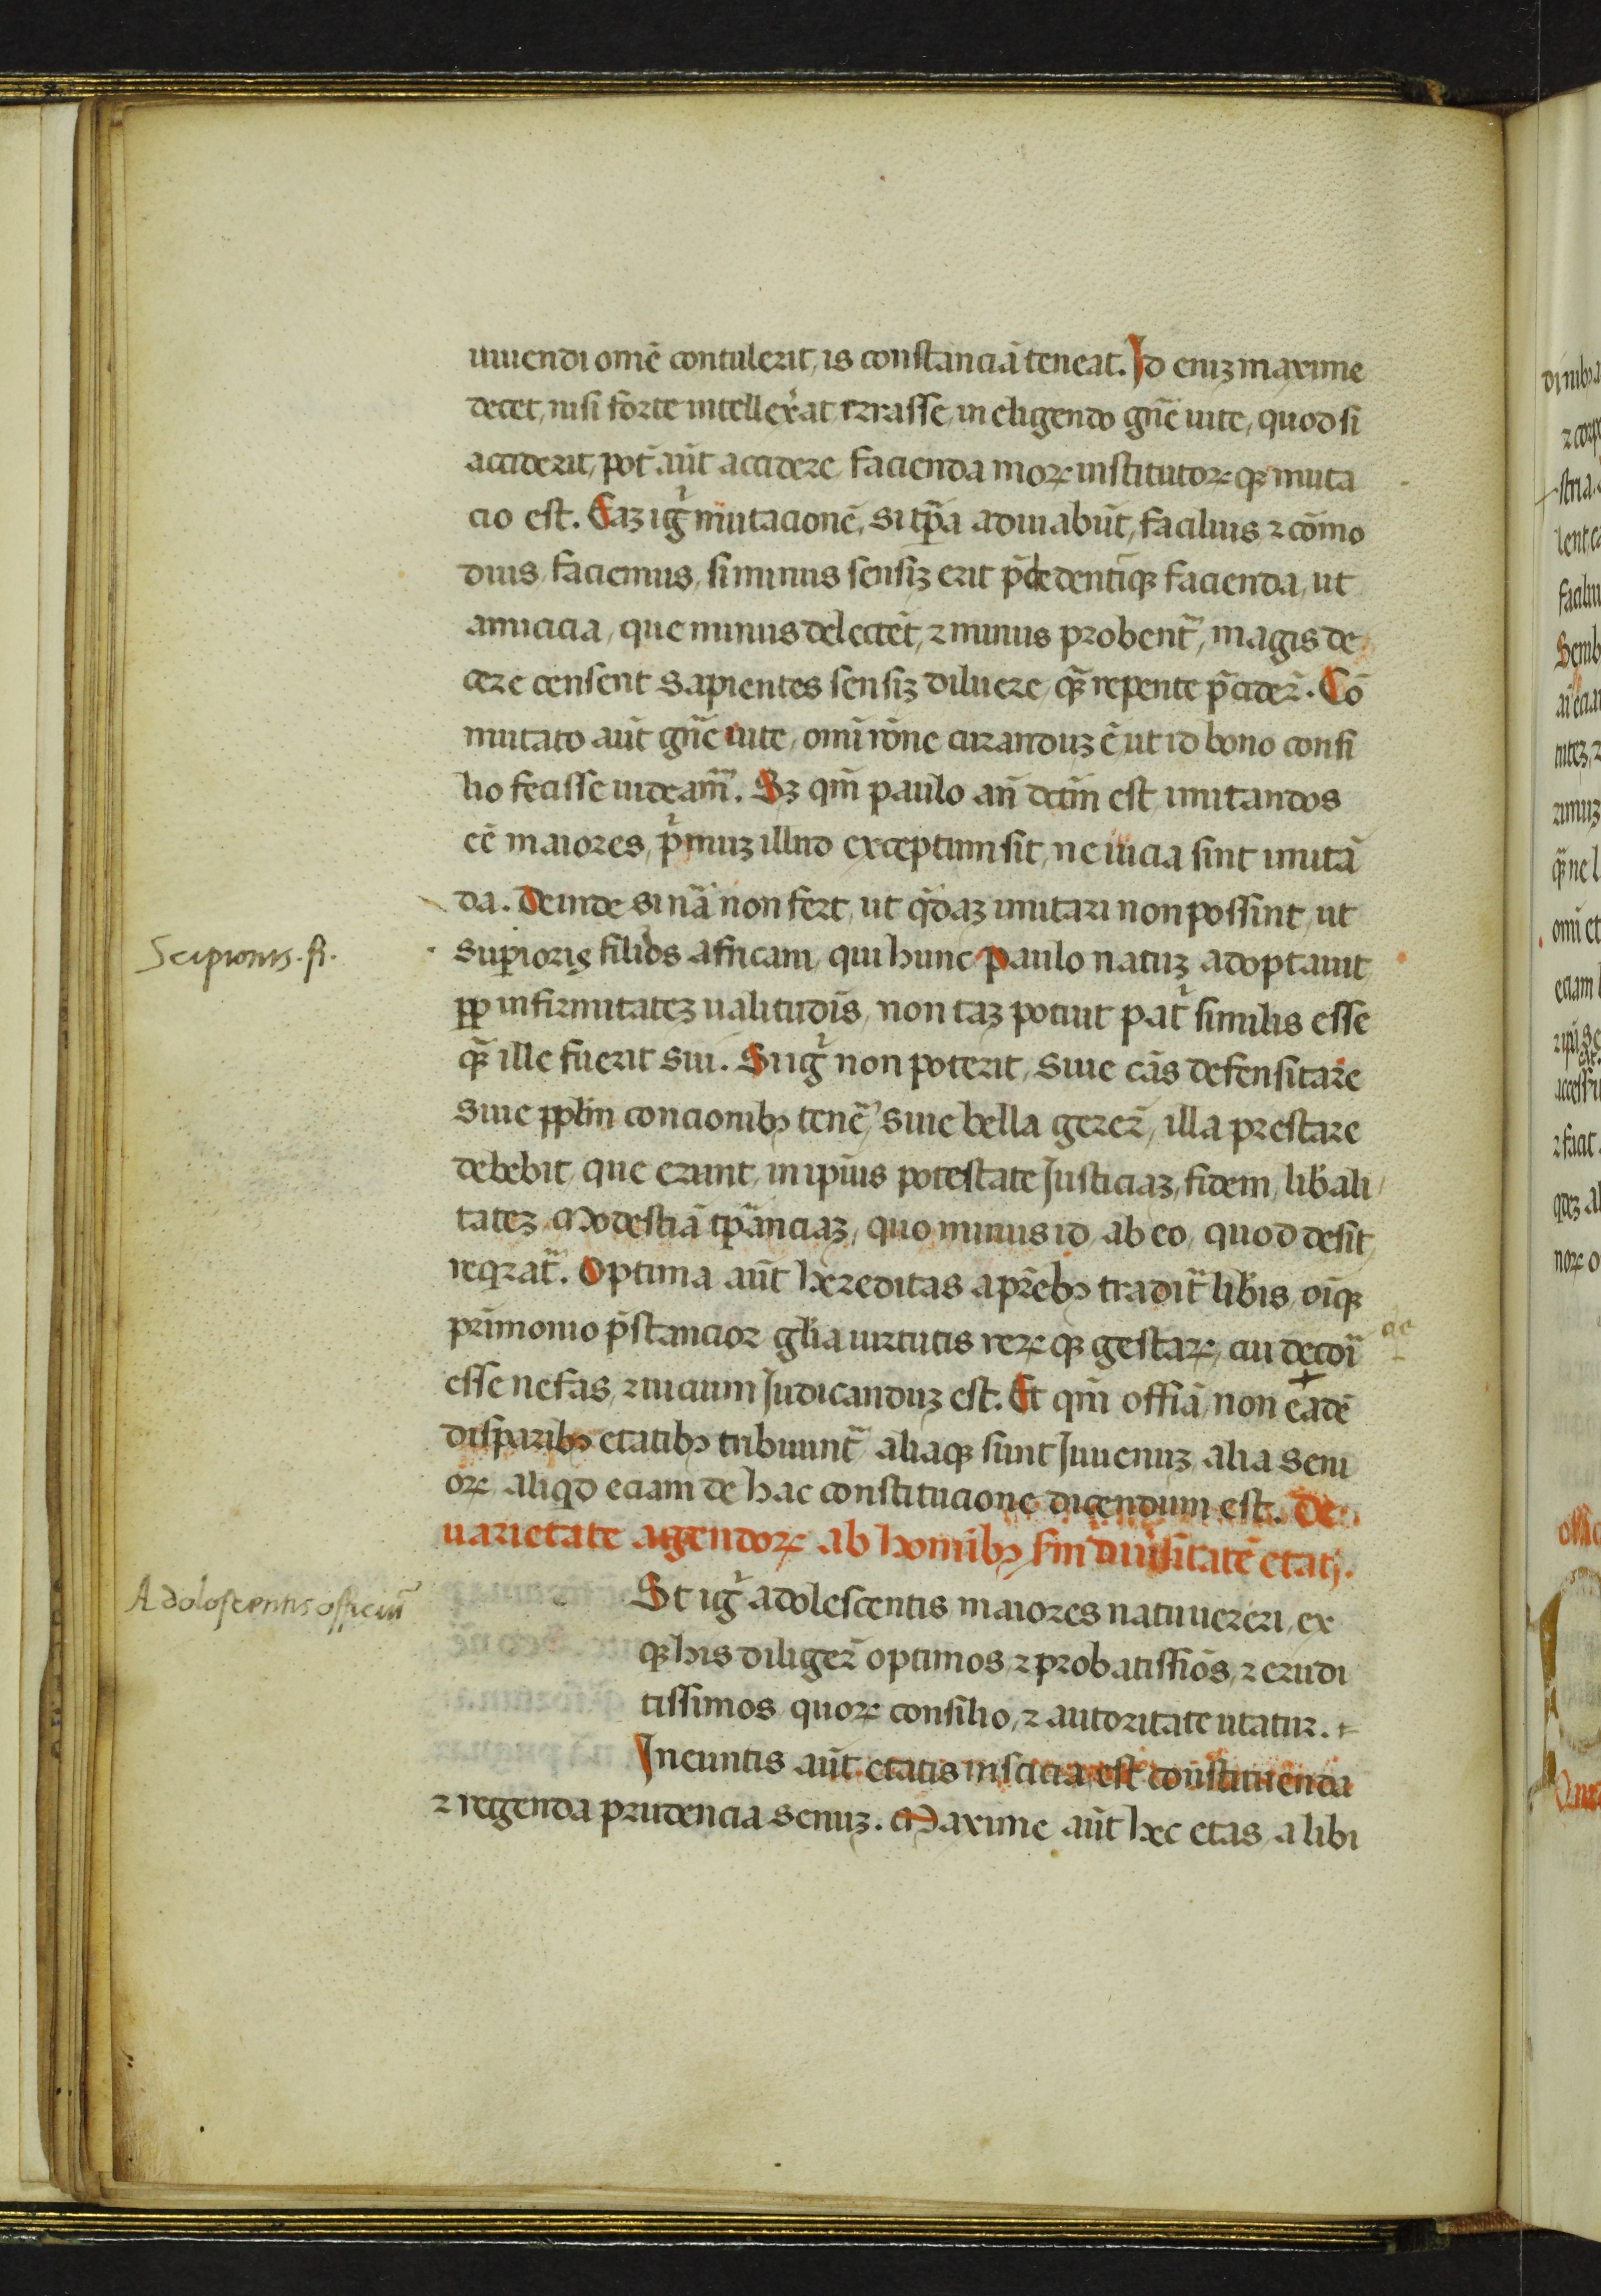 uiuendi omē contulerit, is constanciā teneat. Id eniꝫ maxime
decet, nisi forte intellexerat errasse, in eligendo gn̄e uite, quod si
acciderit, pot̄ aūt accidere facienda moꝝ institutoꝝ qꝫ muta
cio est. Eaꝫ igr̄ mutacionē, si tp̄a adiuuabūt, facilius ⁊ cōmo
dius, faciemus, si minus sensiꝫ erit pedetentī qꝫ facienda, ut
amicicia, que minus delectēt, ⁊ minus probent̄, magis de
cere censent sapientes sensiꝫ diluere, qꝫ̄ repente p̄cider̄. Cō
mutato aūt gn̄e uite, omī rōne curanduꝫ ē ut id bono consi
lio fecisse uideam̄. Sꝫ qm̄ paulo an̄ dctm̄ est imitandos
eē maiores, pͥmuꝫ illud exceptum sit, ne uicia sint imitā
da. Deinde si nā non fert, ut qͥdaꝫ imitari non possint, ut
superioris filius africani, qui hunc paulo natuꝫ adoptauit
ꝓp infirmitateꝫ ualitudīs, non taꝫ potuit patͥ similis esse
qꝫ̄ ille fuerit sui. Si igr̄ non poterit, siue cās defensitare
siue ppl̄m concionibꝫ tenē, siue bella gerer̄, illa prestare
debebit, que erunt, in ipīus potestate Justiciaꝫ, fidem, libali
tateꝫ Modestiā tp̄anciaꝫ, quo minus id ab eo, quod desit
reqrat̄. Optima aūt hereditas a pr̄ebꝫ tradit̄ libis, oīqꝫ
primonio p̄stancior gl̄ia uirtutis reꝝ qꝫ gestaꝝ, cui dedōi
esse nefas, ⁊ uicium Judicanduꝫ est. Et qm̄ offīa non eadē
disparibꝫ etatibꝫ tribuunt̄ aliaqꝫ sunt Juuenuꝫ alia seni
oꝝ aliqd eciam de hac constitucione dicendum est. De
uarietate agendoꝝ ab homībꝫ sm̄ diuīsitatē etatꝭ.
Scipionis. fi.
Adolescentis officiū
St igr̄ adolescentis maiores natu uereri, ex
qꝫ his diliger̄ optimos, ⁊ probatissīos, ⁊ erudi
tissimos quoꝝ consilio, ⁊ autoritate utatur.
Ineuntis aūt etatis inscicia est constituenda
⁊ regenda prudencia senuꝫ. Maxime aūt hec etas a libi